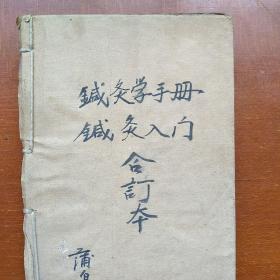 鍼灸学手册
鍼灸入门
合訂本
蒲